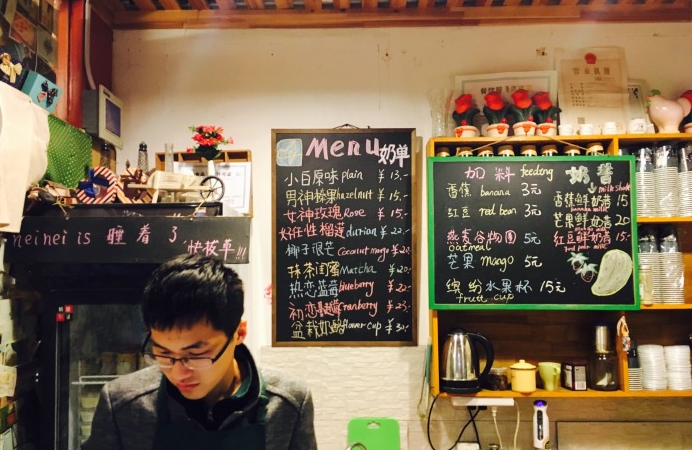 neinei is 睡着了
快按平!!!
Menu 奶单
小白原味 plain ￥13.-
男神榛果 hazelnut ￥15.-
女神玫瑰 Rose ￥15.-
好任性榴莲 durian ￥22.-
椰子很芒 Coconut mango ￥20.-
抹茶闺蜜 Matcha ￥20.-
热恋蓝莓 blueberry ￥22.-
初恋蔓越莓 Cranberry ￥23.-
盆栽奶酪 flower cup ￥30.-
加料 feeding
香蕉 banana 3元
红豆 red bean 3元
燕麦谷物圈 5元
oatmeal
芒果 Mago 5元
缤纷水果杯 15元
fruit cup
奶昔
milk shake
香蕉鲜奶昔 15
芒果鲜奶昔 20
红豆鲜奶昔 15.-